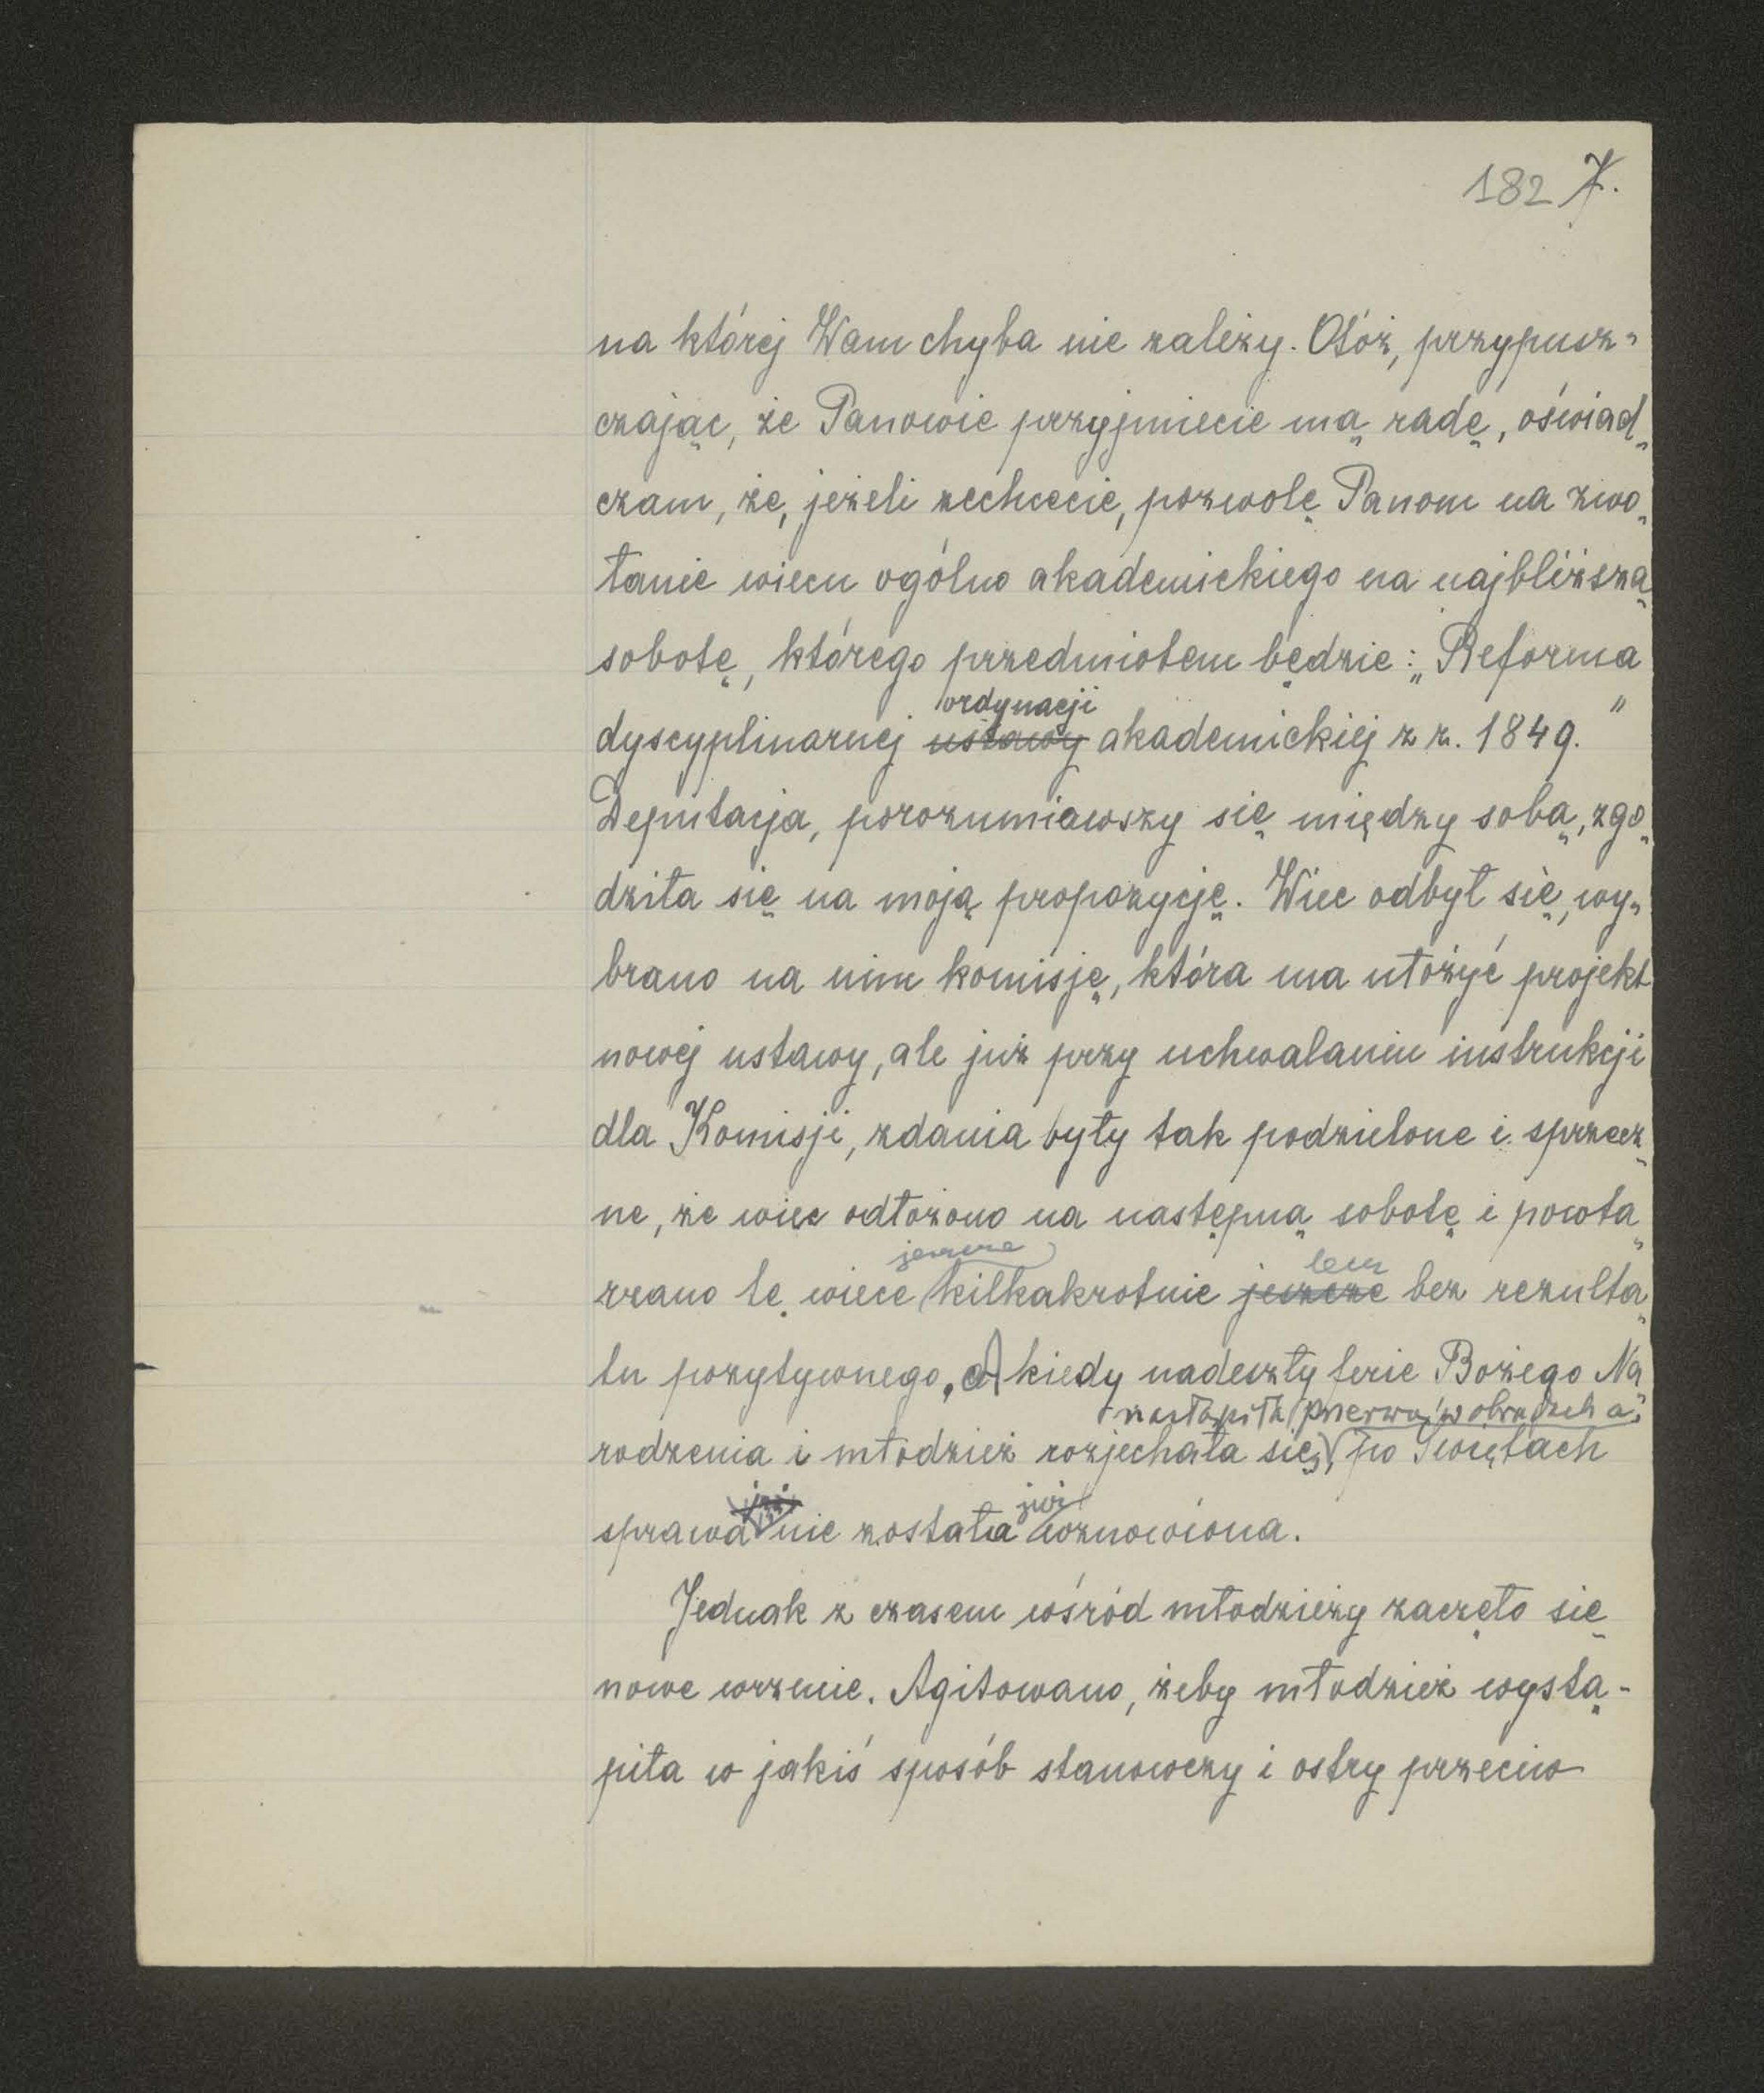 182 7.
na której Wam chyba nie zależy. Otóż, przypusz„
czając, że Panowie przyjmiecie mą radę, oświad„
czam, że, jeżeli zechcecie, pozwolę Panom na zwo„
łanie wiecu ogólno akademickiego na najbliższą
sobotę, którego przedmiotem będzie: „Reforma
ordynacji
dyscyplinarnej ustawy akademickiej z r. 1849."
Deputacja, porozumiawszy się między sobą, zgo„
dziła się na moją propozycję. Wiec odbył się, wy„
brano na nim komisję, która ma ułożyć projekt
nowej ustawy, ale już przy uchwalaniu instrukcji
dla Komisji, zdania były tak podzielone i sprzecz„
ne, że wiec odłożono na następną sobotę i powta„
jeszcze lecz
rzano te wiece kilkakrotnie jeszcze bez rezulta„
tu pozytywnego, a kiedy nadeszły ferie Bożego Na„
nastąpiła przerwa w obradach a
rodzenia i młodzież rozjechała się, po Świętach
już już
sprawa nie została wznowiona.
Jednak z czasem wśród młodzieży zaczęło się
nowe wrzenie. Agitowano, żeby młodzież wystą-
piła w jakiś sposób stanowczy i ostry przeciw